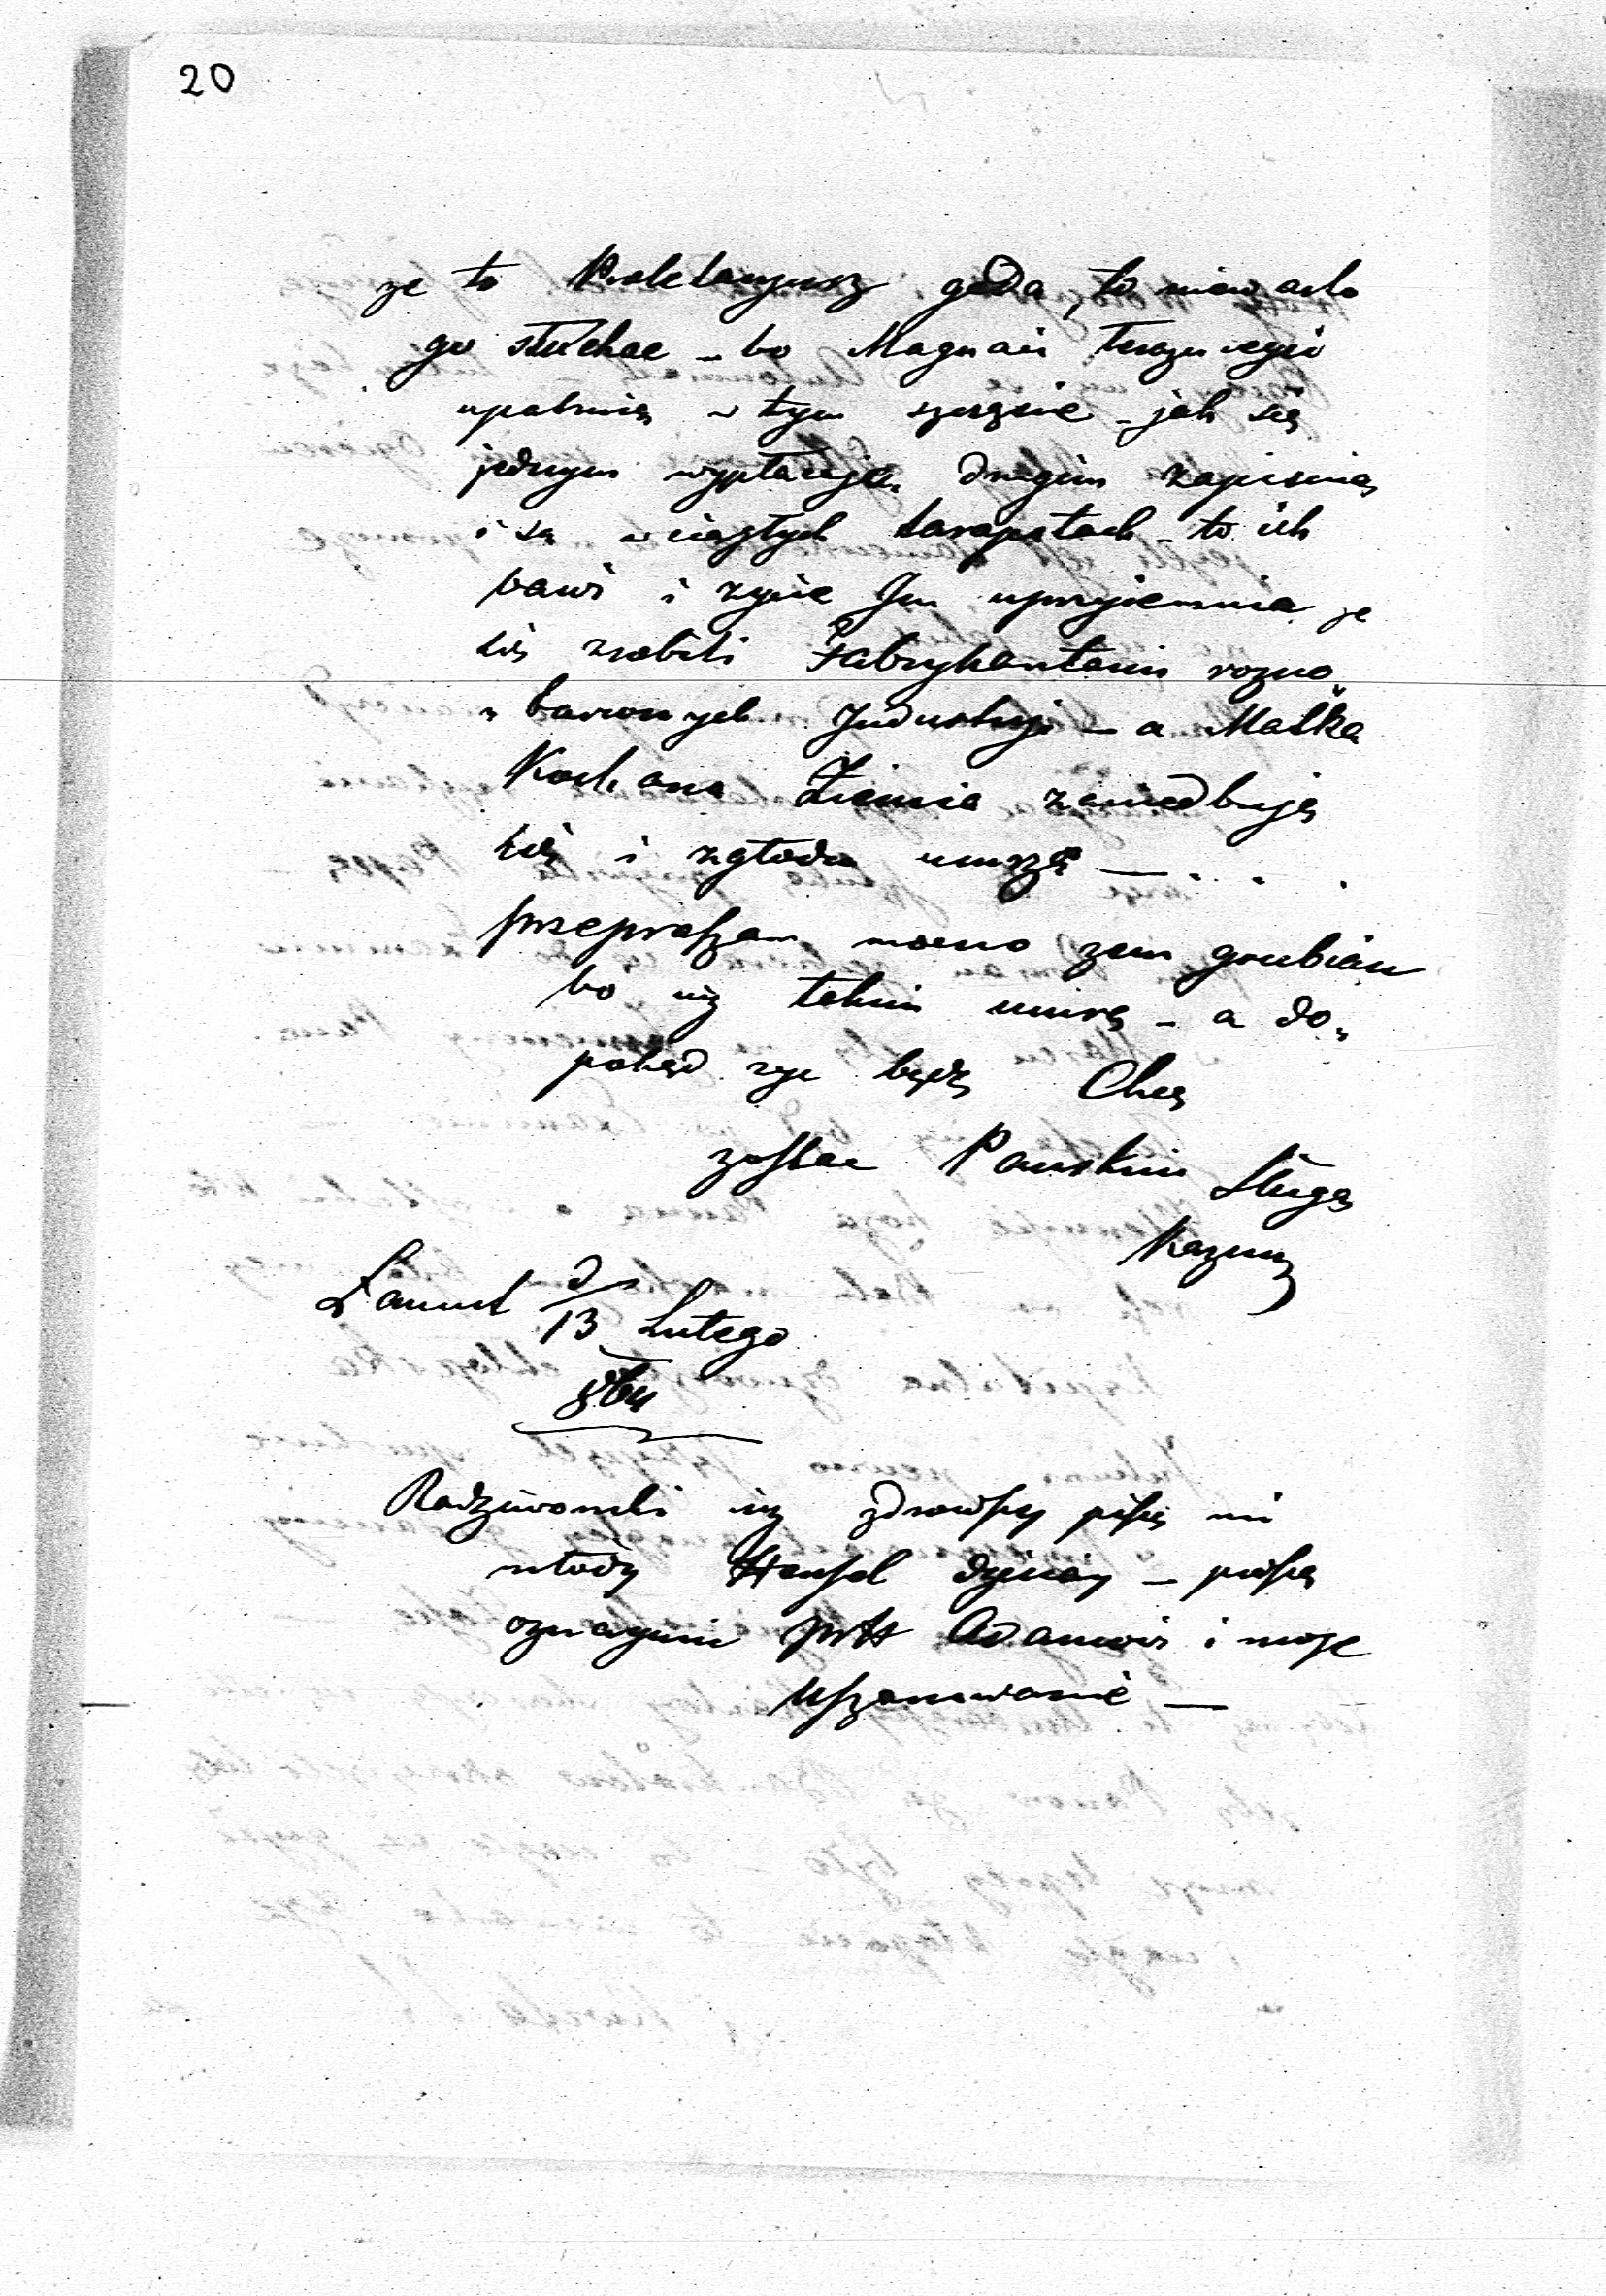 20
ze to Proletaryusz gada, to niewarto
go słuchac – bo Magnaci
upatruią w tym szczęscie – jak się
jednym wypłacają, drugim zapisuią
i są w ciągłych tarapatach – to ich
bawi i zycie Im uprzyiemnia, ze
się zrobili Fabrykantami rozno„
„barwnych Industryi – a Matka
Kochana Ziemia zaniedbuję
się i zgłodu umrze – . . .
przepraszam mocno zem grubian
bo iuz takim umrę – a do„
pokąd zyc będę Chcę
zostac Panskim Sługą
Kazmrz
Łancut d 13 Lutego
Radziwonski iuz zdrowszy pisze mi
młody Hensel dzisiay – proszę
oznaymic Adamowi i moze
Uszanowanie –